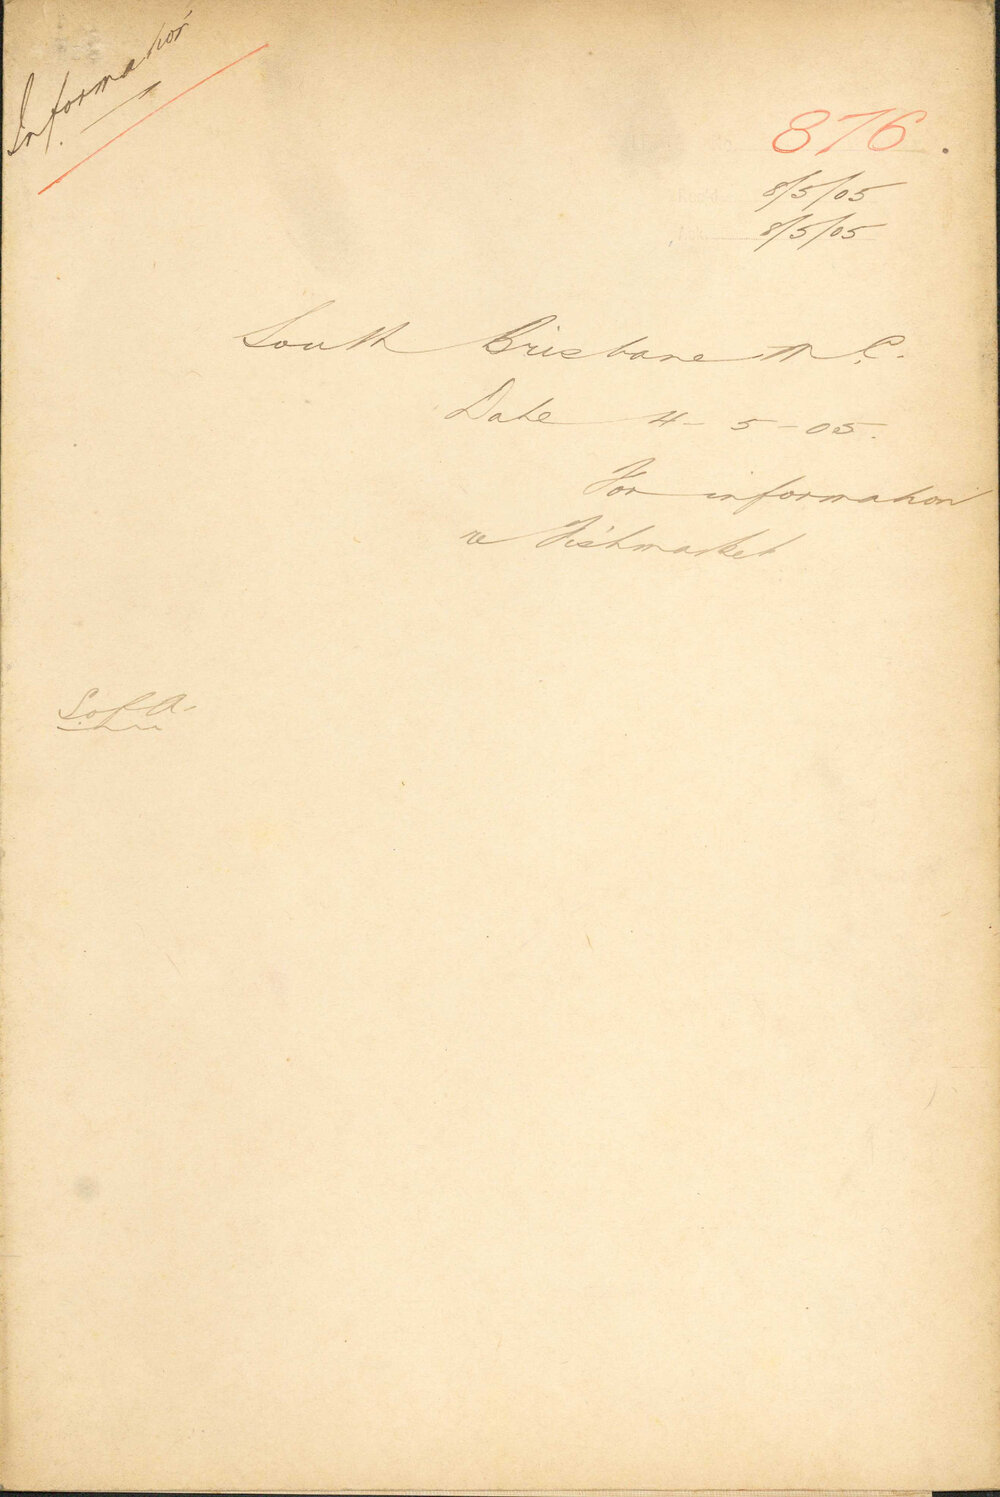 Information
876.
8/5/05
8/5/05
South Brisbane M.C.
Date 4-5-05.
For information
re Fishmarket
S.of A.